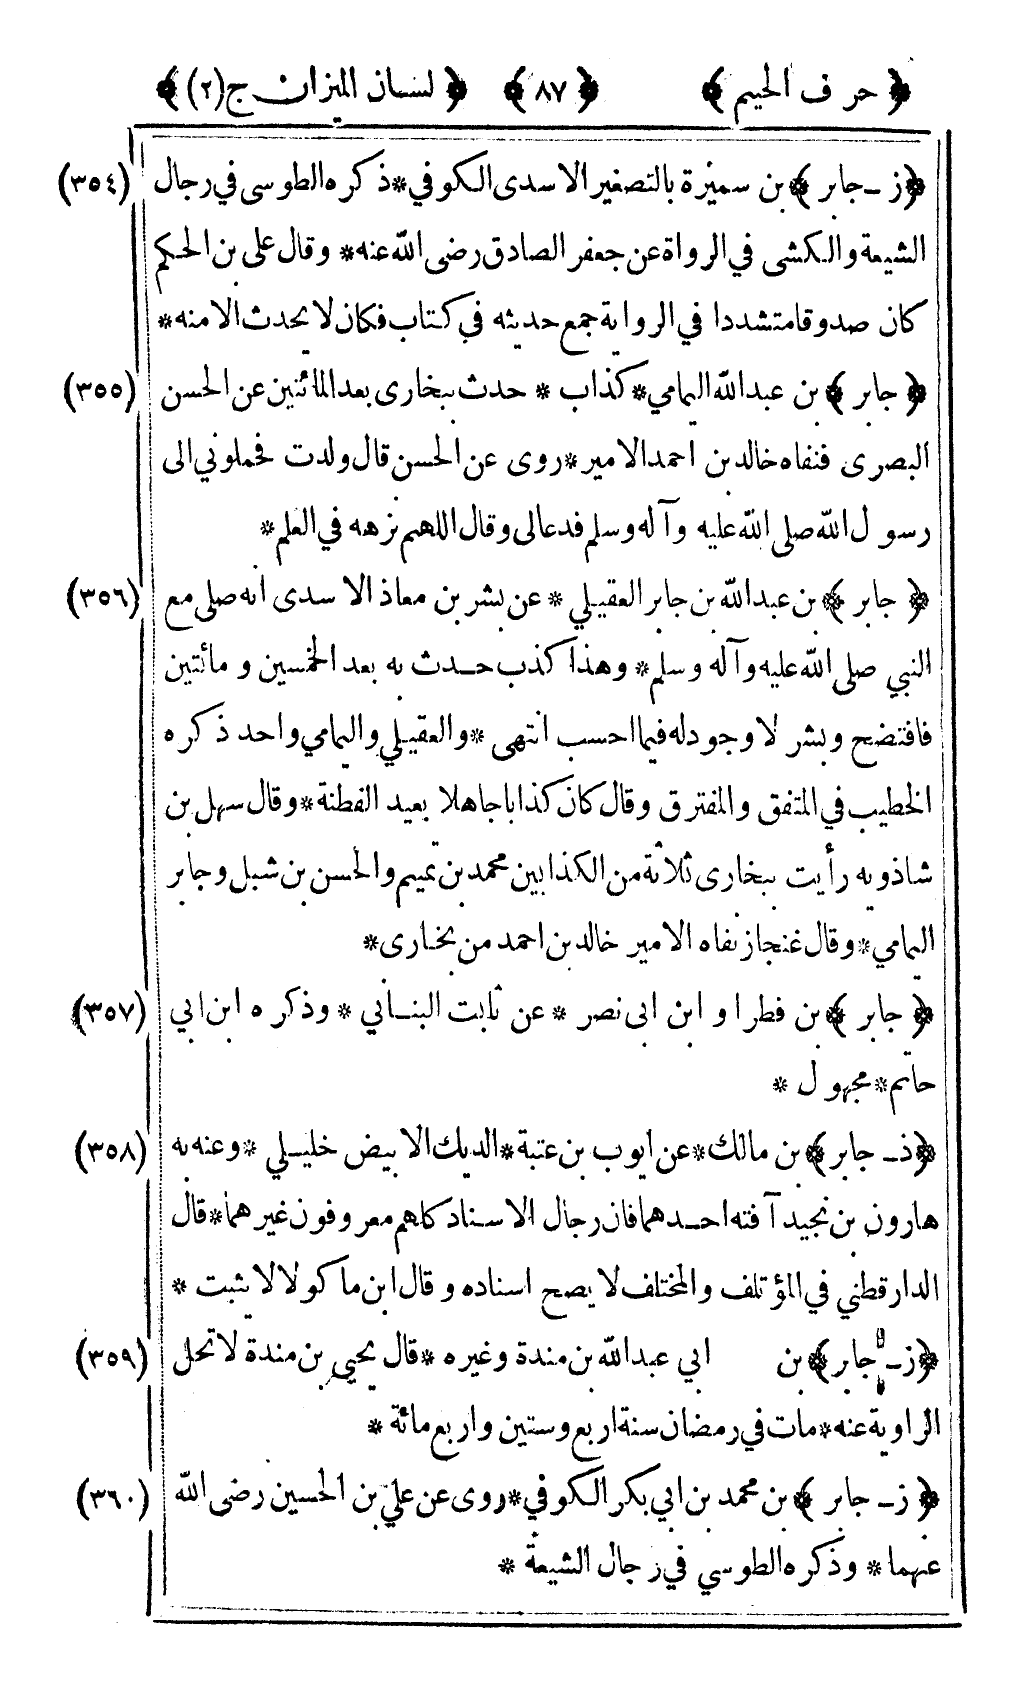 ﴿ حرف الجيم ﴾ ﴿ ٨٧ ﴾ ﴿ لسان الميزان ج(٢) ﴾
﴿ز ـ جابر ﴾ بن سميرة بالتصغير الاسدى الكوفي*ذكره الطوسى في رجال (٣٥٤)
الشيعة والكشى في الرواة عن جعفر الصادق رضى الله عنه* وقال على بن الحكم
كان صدوقا متشددا في الرواية جمع حديثه في كتاب فكان لا يحدث الا منه*
﴿ جابر ﴾ بن عبدالله اليمامي*كذاب * حدث ببخارى بعد المائتين عن الحسن (٣٥٥)
البصرى فنفاه خالد بن احمد الامير*روى عن الحسن قال ولدت فحملوني الى
رسول الله صلى الله عليه وآله وسلم فدعالى وقال اللهم نزهه في العلم*
﴿ جابر ﴾ بن عبدالله بن جابر العقيلي * عن بشر بن معاذ الاسدى انه صلى مع (٣٥٦)
النبي صلى الله عليه وآله وسلم* وهذا كذب حدث به بعد الخمسين و مائتين
فافتضح وبشر لا وجود له فيما احسب انتهى *والعقيلي واليمامي واحد ذكره
الخطيب في المتفق والمفترق وقال كان كذابا جاهلا بعيد الفطنة*وقال سهل بن
شاذويه رأيت ببخارى ثلاثة من الكذابين محمد بن تميم والحسن بن شبل وجابر
اليمامي*وقال غنجاز نفاه الامير خالد بن احمد من بخارى*
﴿ جابر ﴾ بن فطر او ابن ابى نصر * عن ثابت البناني * وذكره ابن ابي (٣٥٧)
حاتم*مجهول *
﴿ذ ـ جابر ﴾ بن مالك*عن ايوب بن عتبة*الديك الابيض خليلي *وعنه به (٣٥٨)
هارون بن نجيد آفته احدهما فان رجال الاسناد كاهم معروفون غيرهما*قال
الدارقطني في المؤتلف والمختلف لا يصح اسناده وقال ابن ماكولا لا يثبت *
﴿ز ـ جابر ﴾ بن ابي عبدالله بن مندة وغيره *قال يحيى بن مندة لا تحل (٣٥٩)
الراوية عنه*مات في رمضان سنة اربع وستين واربع مائة *
﴿ ز ـ جابر ﴾ بن محمد بن ابي بكر الكوفي*روى عن علي بن الحسين رضى الله (٣٦٠)
عنهما* وذكره الطوسي في رجال الشيعة *